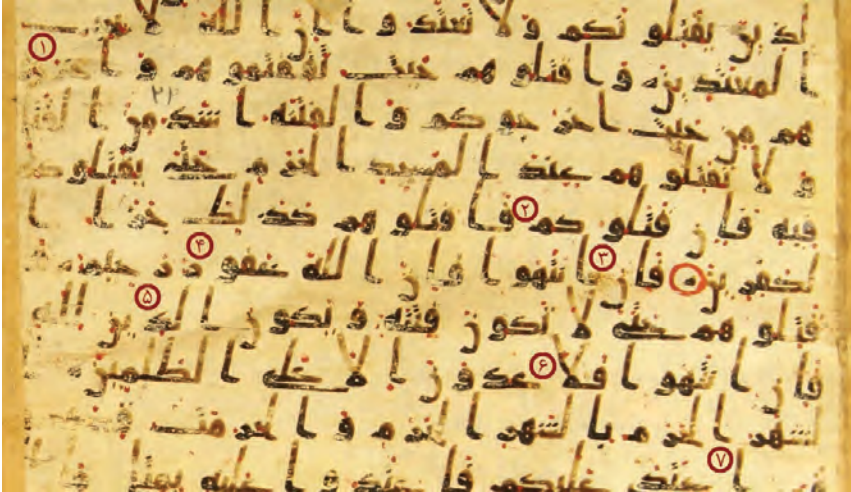 لذين يقتلو نكم ولا تعتدوا ان الله لا يحب ۱
المعتدين واقتلو هم حيث ثقفتمو هم واخرجو
هم من حيث اخر جو كم والفتنه اشد من القتل
و لا تقتلو هم عند المسجد الحر م حتى يقتلوكم
فيه فان قتلو كم ۲ فاقتلو هم كذلك جزا ا
لكفر ين فان ۳ انتهوا فان الله غفو ۴ ر رحيم و
قتلو هم حتى لا تكو ن فتنه و يكو ن ۵ الدين لله
فان انتهوا فلا ۶ عدو ن الا على الظلمين
لشهر الحر م بالشهر الحر م و الحر مت
فمن ۷ اعتدى عليكم فا عتدوا عليه بمثل